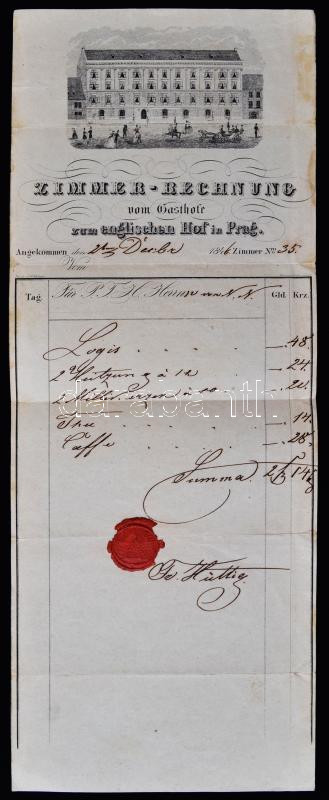 ZIMMER-RECHNUNG
vom Gasthofe
zum englischen Hof in Prag.
Angekommen den 2ten Decbr 1846 Zimmer No 35.
Vom
Tag. Für P. T. H. Herrn von N. N. Gld. Krz.
Logis . . . . — 48.
2 Heitzung à 12 . . — 24.
2 à 10 — 20.
Thee . . . . — 14.
Caffe . . . . — 28.
Summa. 2 f 14 x
Hüttig
darabanth